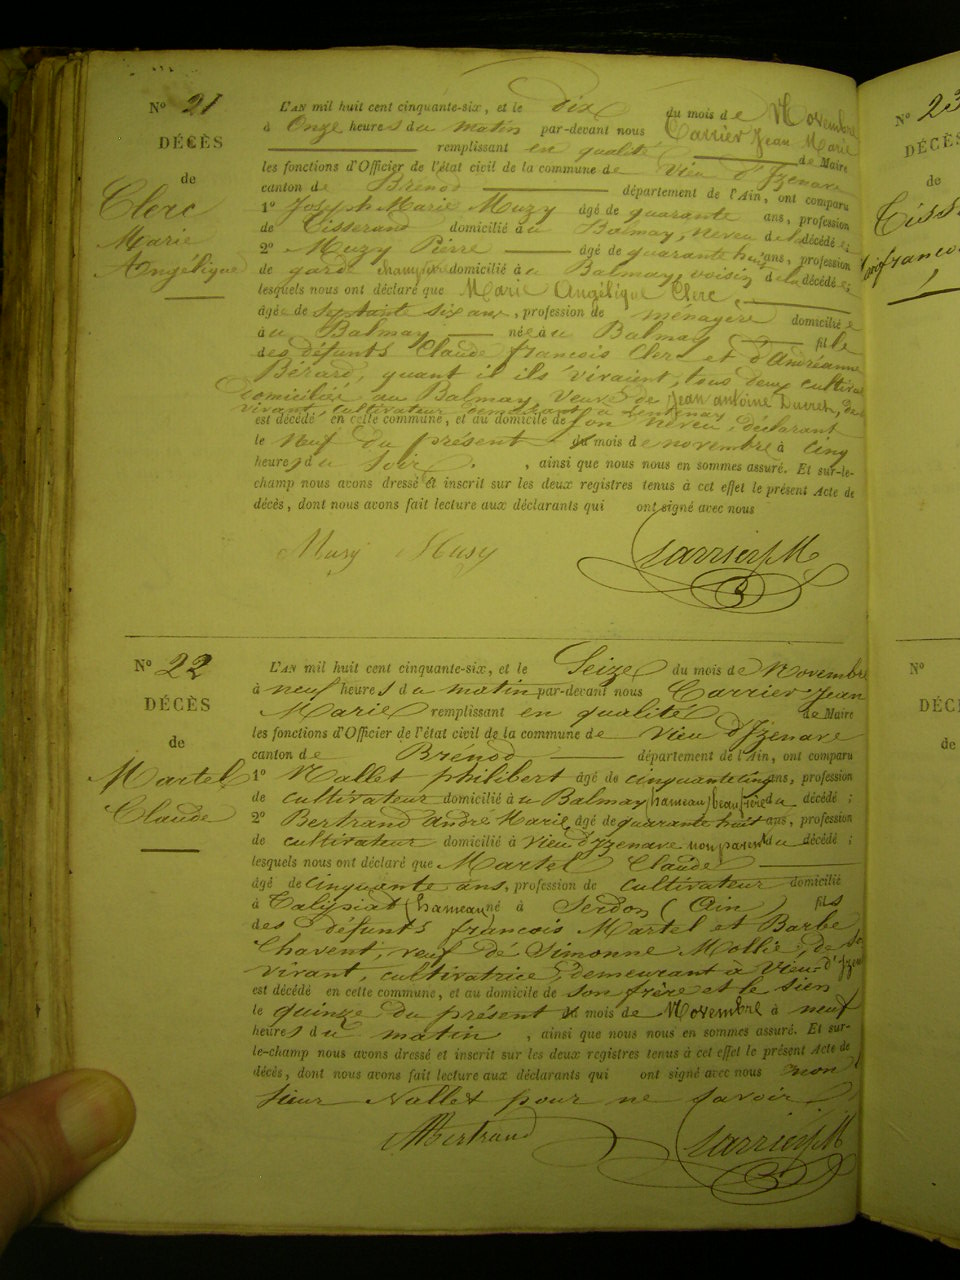 N° 21
DÉCÈS
de
Clerc
Marie
Angélique
L'AN mil huit cent cinquante-six, et le dix du mois de Novembre
à Onze heures du matin par-devant nous Carrier Jean Marie
remplissant en qualité de Maire
les fonctions d'Officier de l'état civil de la commune de Vieu d'Izenave
canton de Brénod département de l'Ain, ont comparu
1° Joseph Marie Muzy âgé de quarante ans, profession
de Tisserand domicilié à u Balmay, neveu de la décédée;
2° Muzy Pierre âgé de quarante huit ans, profession
de garde champêtre domicilié à u Balmay, voisin de la décédée;
lesquels nous ont déclaré que Marie Angélique Clerc,
âgée de septante six ans, profession de ménagère domiciliée
à u Balmay née à u Balmay fille
des défunts Claude françois Clerc et d'Andréanne
Bérard, quant il ils vivaient, tous deux cultiva
domiciliés au Balmay, veuve de Jean antoine Ducret, de
vivant, cultivateur demeurant à Lentenay
est décédé en cette commune, et au domicile de son neveu, déclarant
le Neuf du présent du mois de novembre à cinq
heures du soir. , ainsi que nous nous en sommes assuré. Et sur-le-
champ nous avons dressé et inscrit sur les deux registres tenus à cet effet le présent Acte de
décès, dont nous avons fait lecture aux déclarants qui ont signé avec nous
Muzy Muzy Carrier J M
N° 22
DÉCÈS
de
Martel
Claude
L'AN mil huit cent cinquante-six, et le Seize du mois de Novembre
à neuf heures du matin par-devant nous Carrier Jean
Marie remplissant en qualité de Maire
les fonctions d'Officier de l'état civil de la commune de Vieu d'Izenave
canton de Brénod département de l'Ain, ont comparu
1° Nallet philibert âgé de cinquante cinq ans, profession
de cultivateur domicilié à u Balmay (hameau) beau frère du décédé;
2° Bertrand André Marie, âgé de quarante huit ans, profession
de cultivateur domicilié à Vieu d'Izenave non parent du décédé;
lesquels nous ont déclaré que Martel Claude
âgé de cinquante ans, profession de cultivateur domicilié
à Talipiat (hameau) né à Serdon (Ain) fils
des défunts françois Martel et Barbe
Chavent, veuf de Simonne Mollie, de son
vivant, cultivatrice demeurant à Vieu-d'Izen
est décédé en cette commune, et au domicile de son frère et le sien
le quinze du présent mois de Novembre à neuf
heures du matin , ainsi que nous nous en sommes assuré. Et sur-
le-champ nous avons dressé et inscrit sur les deux registres tenus à cet effet le présent Acte de
décès, dont nous avons fait lecture aux déclarants qui ont signé avec nous non
sieur Nallet pour ne savoir
AMBertrand Carrier J M
N° 23
DÉCÈS
de
Tiss
françoi
N°
DÉC